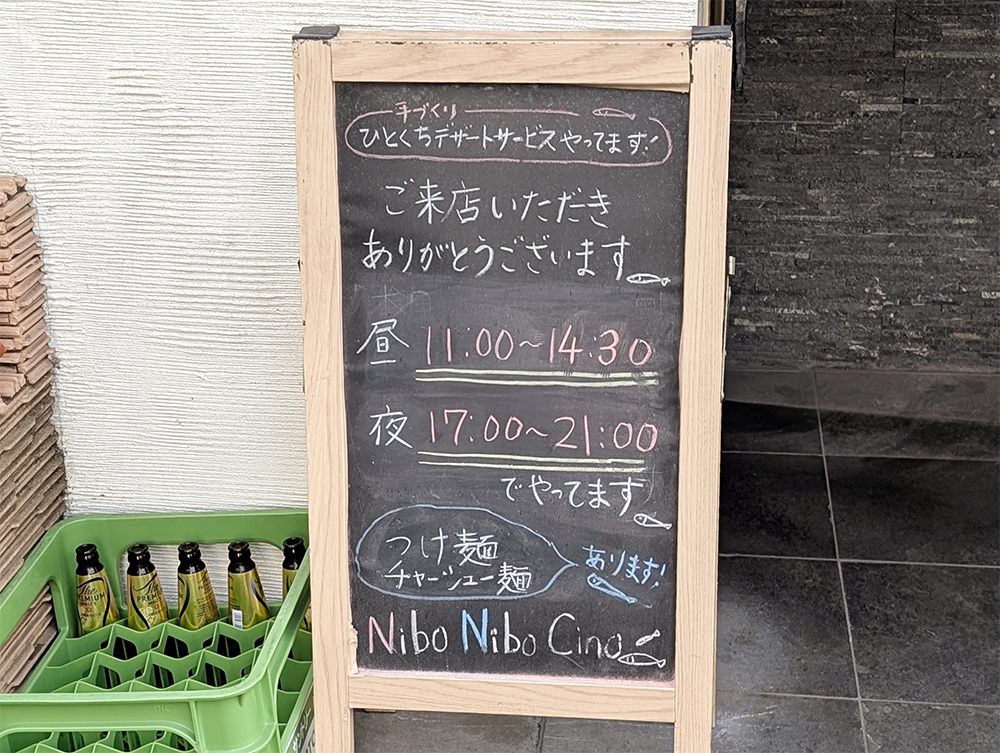 手づくり
ひとくちデザートサービスやってます!
ご来店いただき
ありがとうございます
昼 11:00～14:30
夜 17:00～21:00
でやってます
つけ麺
チャーシュー麺
あります!
Nibo Nibo Cino
The
PREMIUM
The
PREM